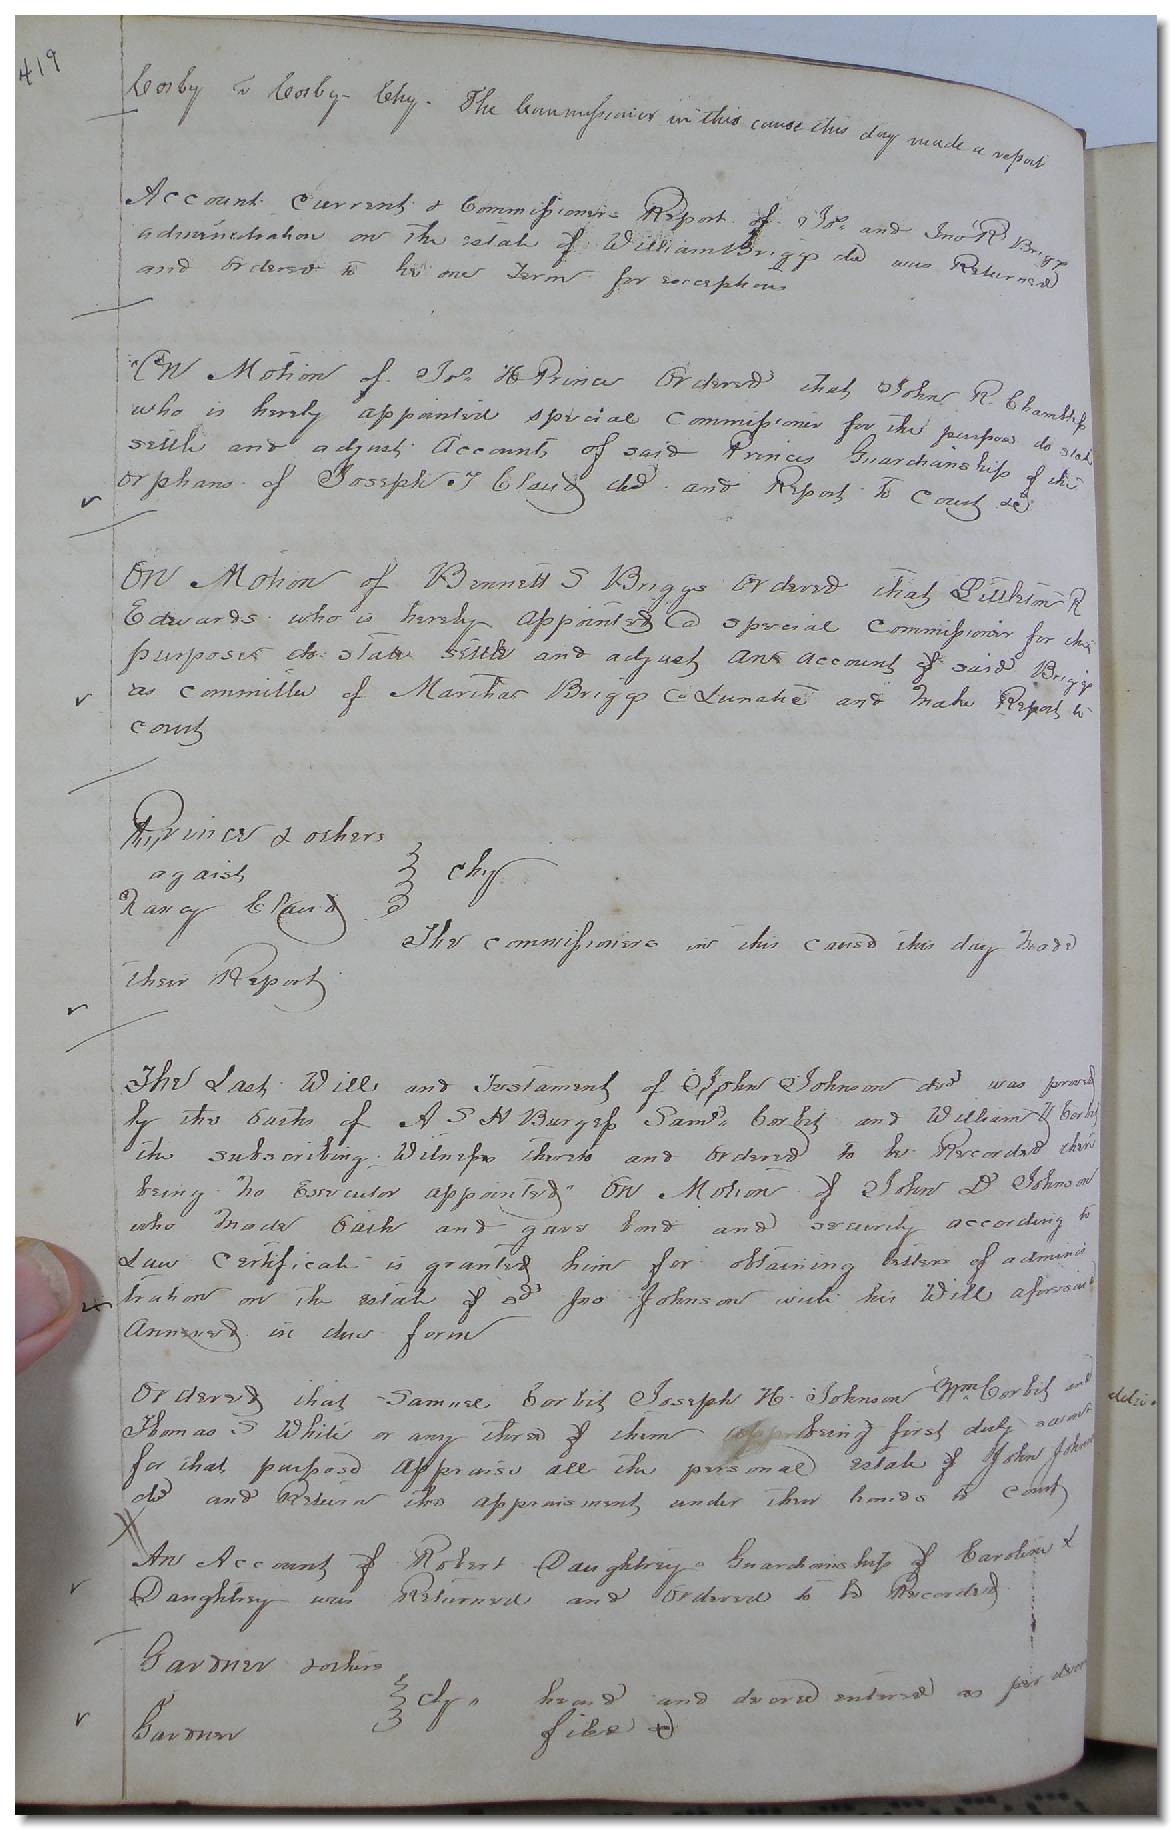 419
Cosby vs Cosby - Chy. The Commissioner in this cause this day made a report
Account Current & Commissioners Report of Jos. and Jno R Briggs
administration on the estate of William Briggs decd was Returned
and Ordered to lie one Term for exceptions
On Motion of Jos. H Prince Ordered that John R. Chambliss
who is hereby appointed special Commissioner for the purpose do state
settle and adjust Accounts of said Princes Guardianship of the
orphans of Joseph T Claud decd and Report to Court &c
On Motion of Bennett S Briggs Ordered that Littleton R
Edwards who is hereby appointed a special Commissioner for the
purpose do state settle and adjust an account of said Briggs
as committee of Marthas Briggs a Lunatic and make Report to
court
Prince & others
agaist
Nancy Claud
chy
The commissioners in this caused this day made
their Report
The Last Will and Testament of John Johnson decd was proved
by the oaths of A S H Burgess Saml Corbit and William Corbit
the subscribing Witness thereto and ordered to be Recorded there
being no Executor appointed On Motion of John D Johnson
who made oath and gave bond and security according to
Law Certificate is granted him for obtaining letters of adminis
tration on the estate of sd Jno Johnson with his Will aforesaid
Annexed in due form
Ordered that Samuel Corbit Joseph H. Johnson Wm Corbit and
Thomas S White or any three of them being first duly sworn
for that purpose appraise all the personal estate of John Johnson
decd and Return the appraisment under their hands to Court
An Account of Robert Daughtrey Guardianship of Caroline &
Daughtrey was Returned and Ordered to be Recorded
Gardner & others
chy heard and decree entered as per decree
Gardner
filed